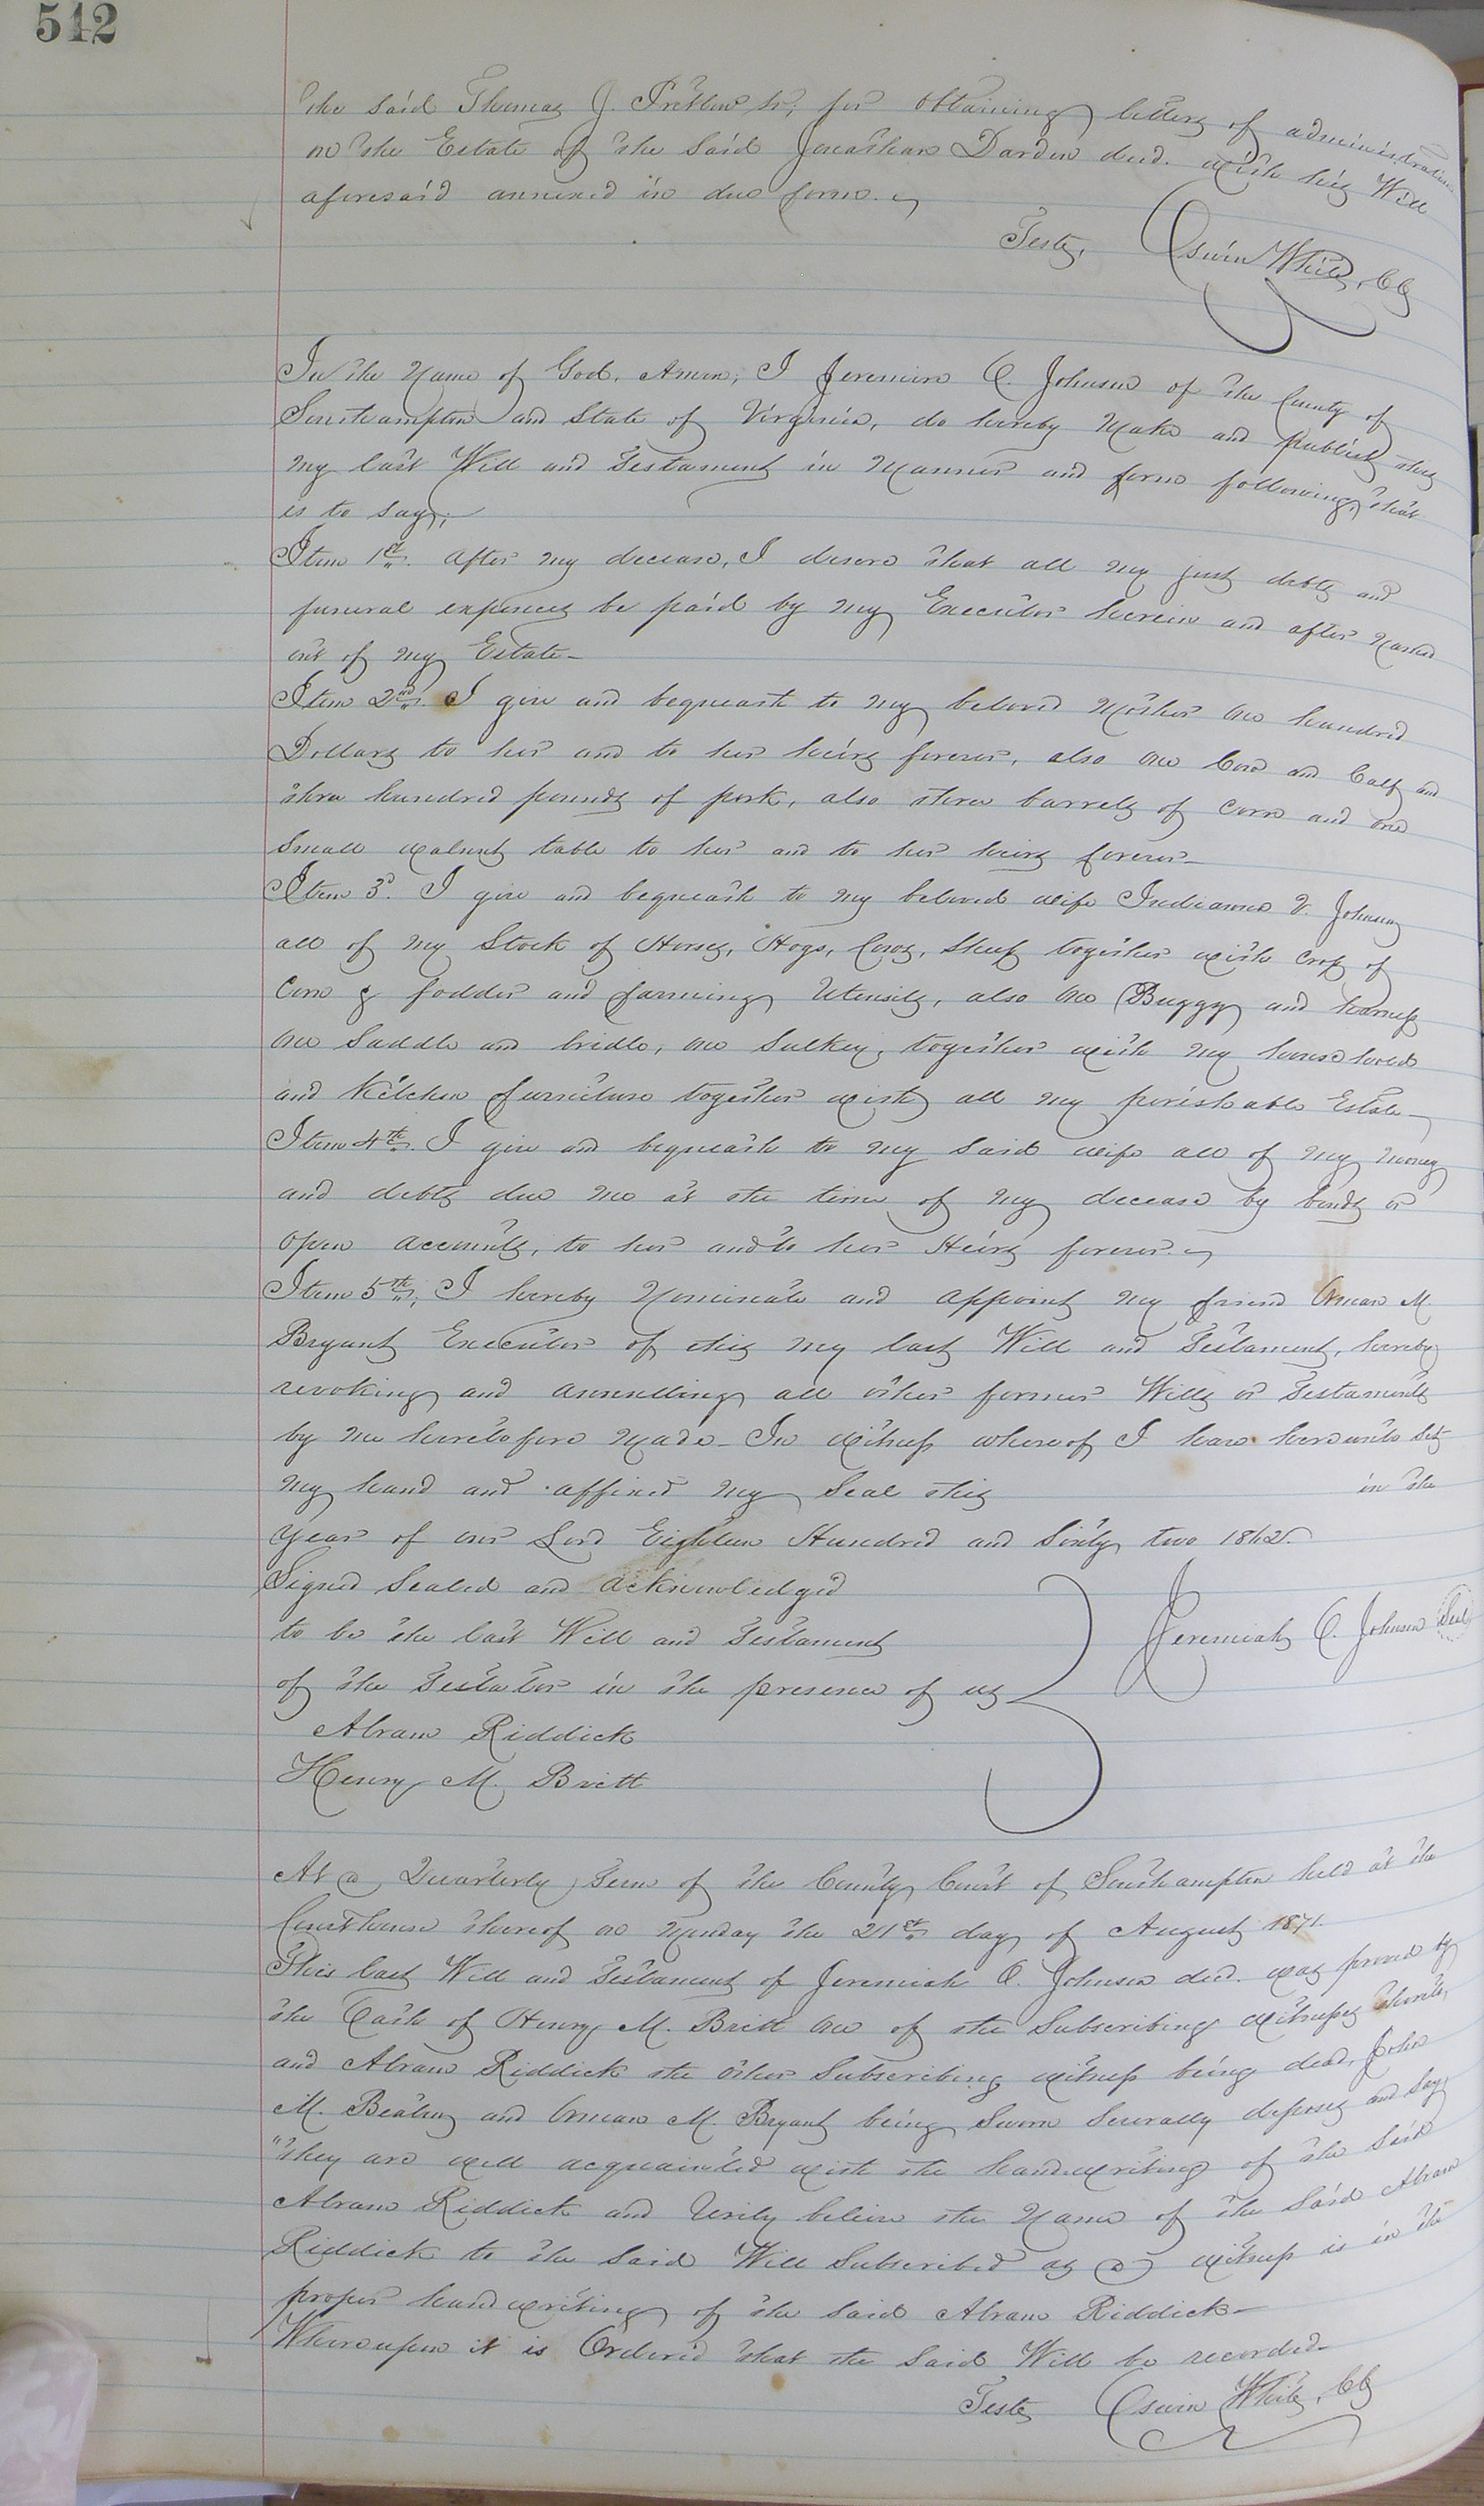 512
the said Thomas J. Pretlow sr; for obtaining letters of administration
on the Estate of the said Jonathan Darden decd. with his Will
aforesaid annexed in due form.
Teste, Oswin White, CC
In the Name of God, Amen; I Jeremiah C. Johnson of the County of
Southampton and State of Virginia, do hereby Make and publish this
my last Will and Testament in Manner and form following, that
is to say;
Item 1st. After my decease, I desire that all my just debts and
funeral expences be paid by my Executor herein and after Named
out of my Estate
Item 2nd. I give and bequeath to my beloved Mother One hundred
Dollars to her and to her heirs forever, also One Cow and Calf and
three hundred pounds of pork, also three barrels of Corn and one
Small walnut table to her and to her heirs forever
Item 3d. I give and bequeath to my beloved wife Indianna V. Johnson
all of my Stock of Horses, Hogs, Cows, Sheep together with crop of
Corn & fodder and farming Utensils, also One Buggy and harness
One Saddle and bridle, One Sulkey, together with my house hold
and Kitchen furniture together with all my perishable Estate
Item 4th. I give and bequeath to my Said wife all of my money
and debts due me at the time of my decease by bonds or
Open accounts, to her and to her Heirs forever.
Item 5th; I hereby Nominate and appoint my friend M.
Bryant Executor of this my last Will and Testament, hereby
revoking and annulling all other former Wills or Testaments
by me heretofore Made- In witness whereof I have hereunto Set
my hand and affixed my Seal this in the
Year of our Lord Eighteen Hundred and Sixty two 1862.
Signed Sealed and acknowledged
to be the last Will and Testament
of the Testator in the presence of us
Jeremiah C. Johnson Seal
Abram Riddick
Henry M. Britt
At a Quarterly Term of the County Court of Southampton held at the
Courthouse thereof on Monday the 21st day of August 1871.
This last Will and Testament of Jeremiah C. Johnson decd. was proved by
the Oath of Henry M. Britt One of the Subscribing witnesses thereto,
and Abram Riddick the Other Subscribing witness being dead, John
M. and M. Bryant being Sworn Severally deposes and Say,
"they are well acquainted with the handwriting of the Said
Abram Riddick and Verily believe the Name of the Said Abram
Riddick to the Said Will Subscribed as a witness is in the
proper handwriting of the said Abram Riddick-
Whereupon it is Ordered that the Said Will be recorded-
Teste Oswin White, CC